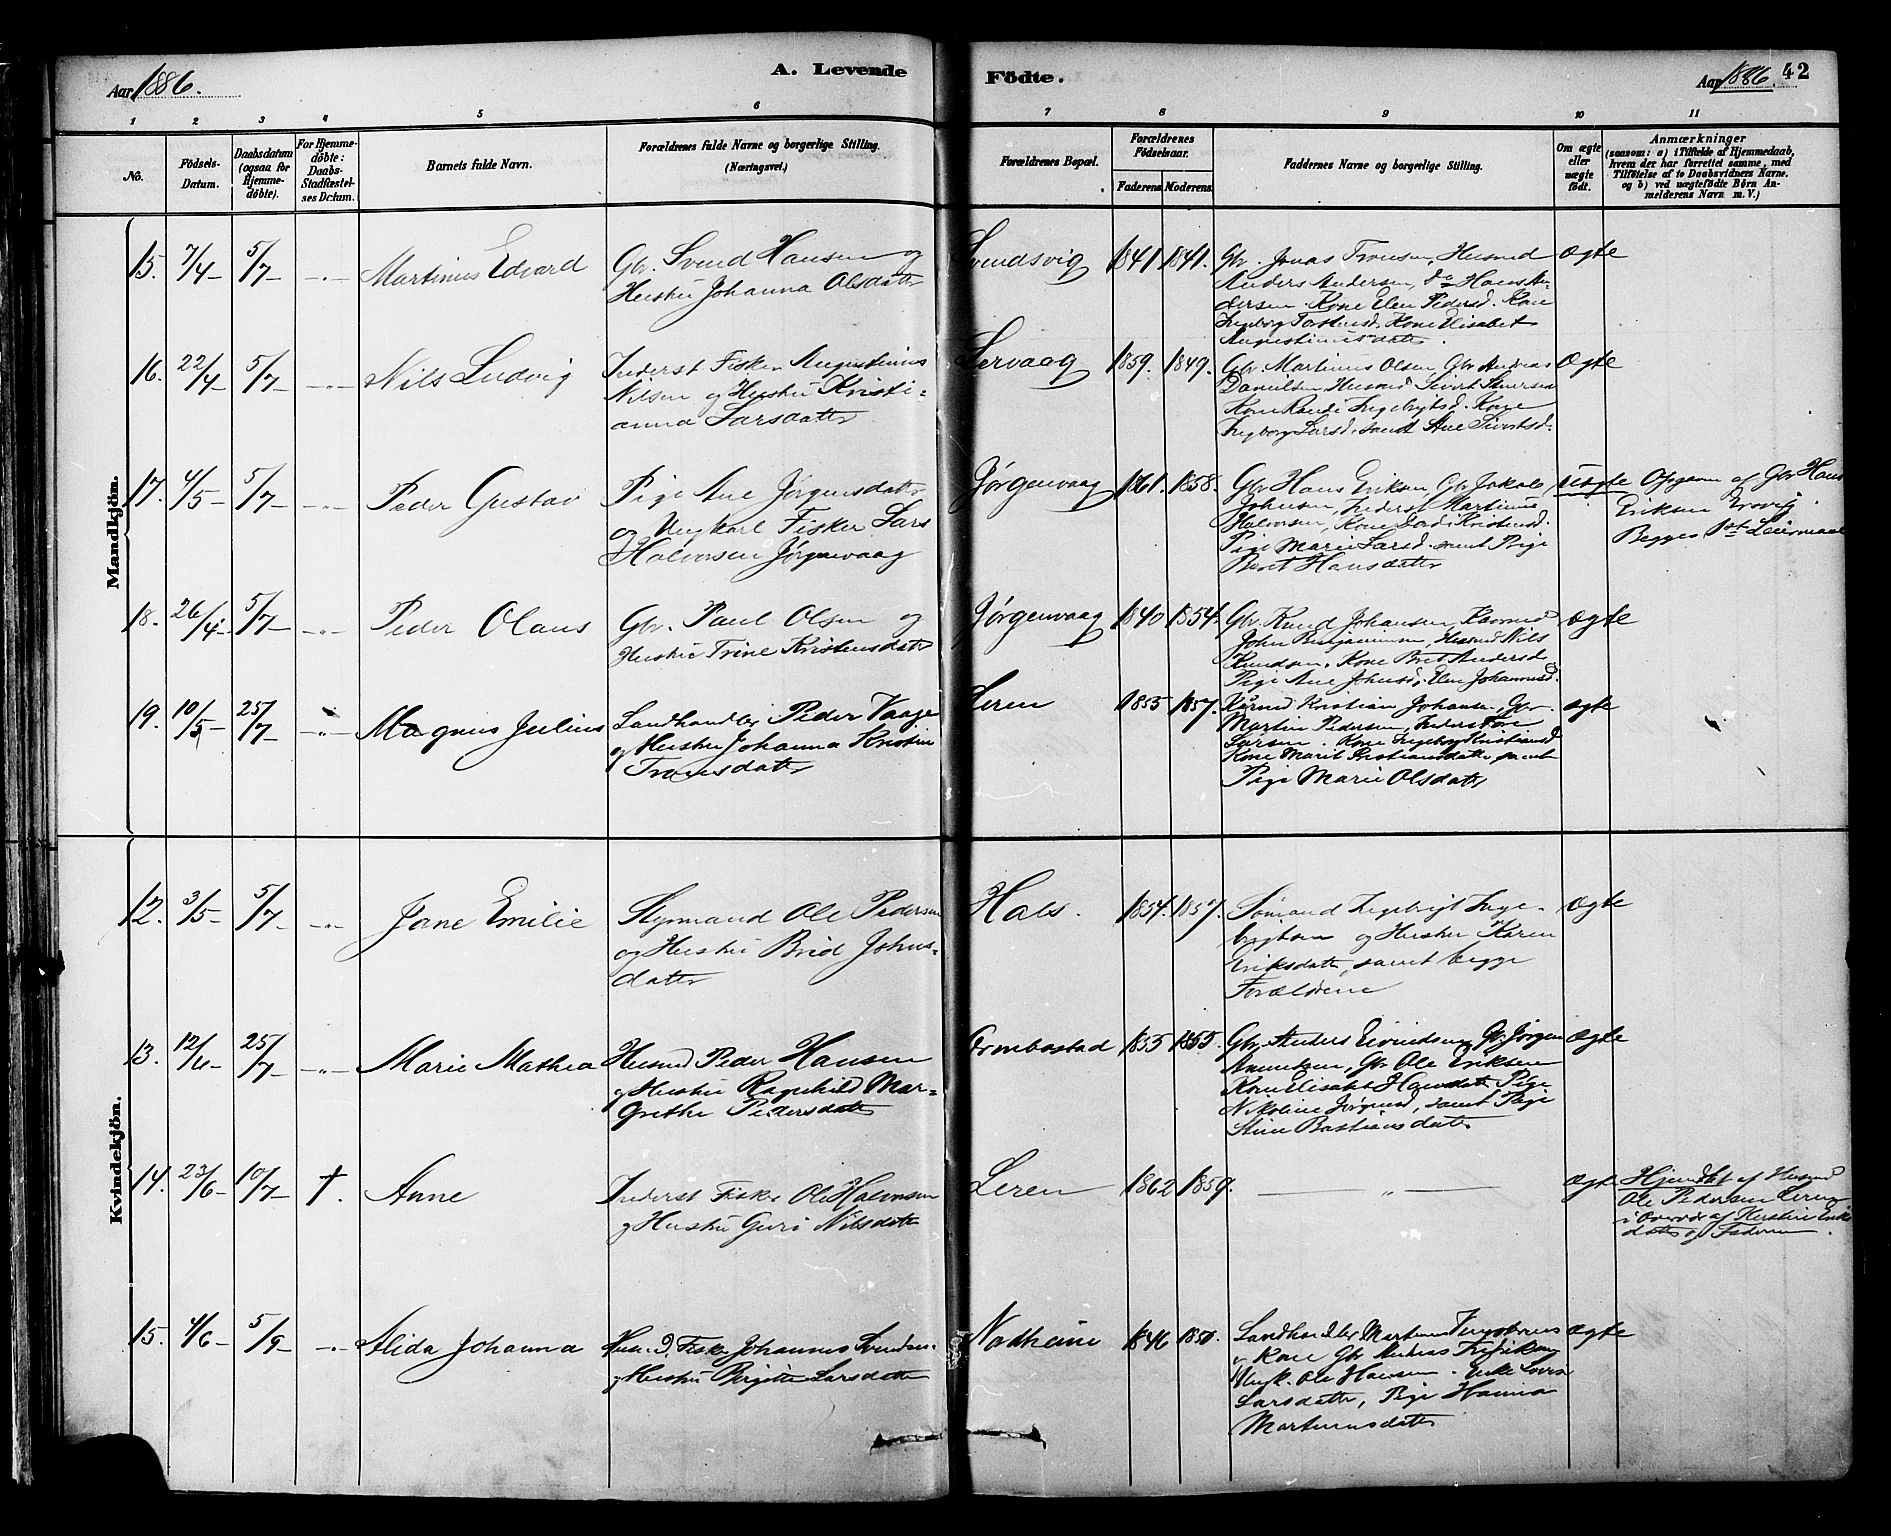 Aar 1886.
A. Levende
Fødte.
Aar 1886. 42
1 2 3 4 5 6 7 8 9 10 11
No.
Födsels-
Datum.
Daabsdatum
(ogsaa for
Hjemme-
döbte).
For Hjemme-
döbte:
Daabs-
Stadfæstel-
ses Datum.
Barnets fulde Navn.
Forældrenes fulde Navne og borgerlige Stilling.
(Næringsvei.)
Forældrenes Bopæl.
Forældrenes
Födselsaar.
Faderens. Moderens.
Faddernes Navne og borgerlige Stilling.
Om ægte
eller
uægte
födt.
Anmærkninger
(saasom: a) i Tilfælde af Hjemmedaab,
hvem der har forrettet samme, med
Tilföielse af to Daabsvidners Navne.
og b) ved uægtefödte Börn An-
melderens Navn m. V.)
Mandkjön.
15. 7/4 5/7 -"- Martinus Edvard
Gbr. Svend Hansen og
Hustru Johanna Olsdatter
Svendsvig 1841 1841.
Gbr. Jonas Tronsen, Husmd
Anders Andersen, do Hans An-
dersen. Kone Elen Pedersd. Kone
Ingeborg Torstensd. Kone Elisabet
Augustinusdatter.
Ægte
16. 22/4 5/7 -"- Nils Ludvig
Inderst Fisker Augustinus
Nilsen og Hustru Kristi-
anna Larsdatter
Lervaag 1859. 1849.
Gbr. Martinus Olsen, Gbr Andreas
Danielsen, Husmd Sivert
Kone Randi Ingebrigtsd. Kone
Ingeborg Larsd. samt Ane Sivertsd.
Ægte
17. 4/5 5/7 -"- Peder Gustav
Pige Ane Jørgensdatter
og Ungkarl Fisker Lars
Halvorsen Jørgenvaag
Jørgenvaag 1861. 1858.
Gbr Hans Eriksen, Gbr Jakob
Johnsen, Inderst Martinus
Halvorsen, Kone Kristensd.
Pige Marie Larsd. samt Pige
Beret Hansdatter
Uægte
Opgivn af Gbr Hans
Eriksen
Begges 1st Leiermaal
18. 26/4 5/7 -"- Peder Olaus
Gbr. Paul Olsen og
Hustru Trine Kristensdatter
Jørgenvaag 1840 1854.
Gbr. Knud Johansen,
John Benjaminsen, Husmd Nils
Knudsen, Kone Brit Andersd
Pige Ane Johnsd, Elen Johannesd.
Ægte
19. 10/5 25/7 -"- Magnus Julius
Landhandler Peder Vaage
og Hustru Johanna Kristine
Tronsdatter
Leren 1855 1857.
Kristian Johansen, Gbr.
Martin Pedersen, Inderst Tore
Larsen. Kone Ingeborg Kristiansd
Kone Marit Kristiansdatter samt
Pige Marie Olsdatter
Ægte
Kvindekjön.
12. 3/5 5/7 -"- Jane Emilie
Styrmand Ole Pedersen
og Hustru Brid Johns-
datter
Hals. 1854. 1857.
Sømand Ingebrigt Inge-
brigtsen og Hustru Karen
Eriksdatter, samt begge
Forældrene
Ægte
13. 12/6 25/7 -"- Marie Mathea
Husmd Peder Hansen
og Hustru Ragnhild Mar-
grethe Pedersdatter
Ormbostad 1855 1855.
Gbr. Anders Eivindsen, Gbr. Jørgen
Gbr Ole Eriksen
Kone Elisabet Hansdatter Pige
Nikoline Jørgensd, samt Pige
Stine Bastiansdatter
Ægte
14. 23/6 10/7 †. Anne
Inderst Fisker Ole Halvorsen
og Hustru Guri Nilsdatter
Leren 1862 1859. — " —
Ægte
Hjemdbt af Husmd
Ole Pedersen Leren
i Overvær af Kirstine Eriks
datter og Faderen.
15. 4/6 5/9 -"- Alida Johanna
Fisker Johannes Svendsen
og Hustru Birgitte Larsdatter
Nordheim 1846 1850.
Landhandler Martinus
& Kone Gbr Andreas
Ungk. Ole Hansen.
Larsdatter, Pige Hanna
Martinusdatter
Ægte